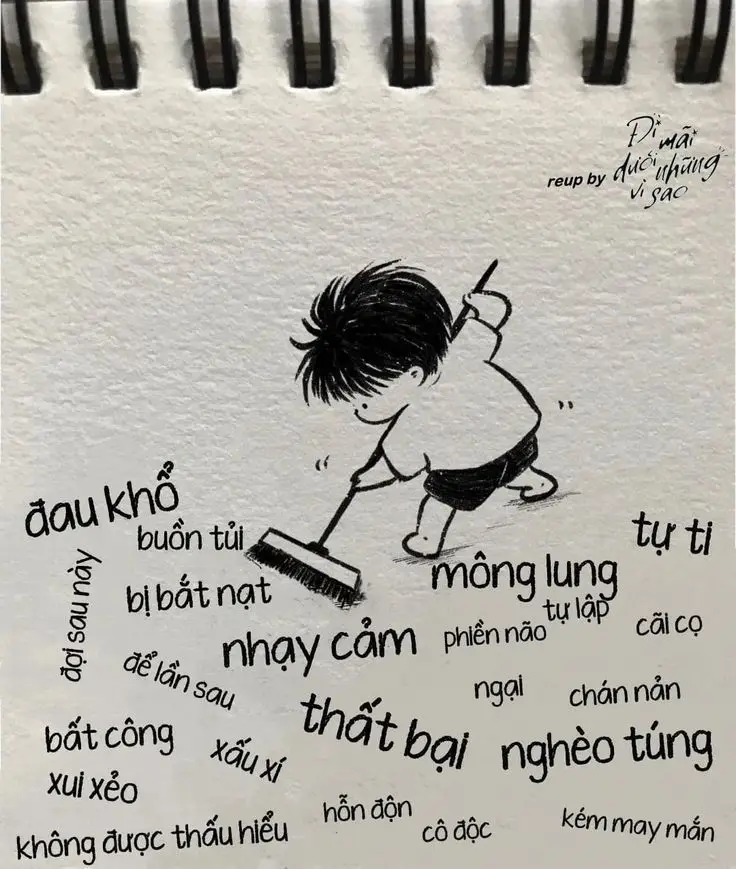 Đi mãi
dưới những
vì sao
reup by
đau khổ
buồn tủi
tự ti
đợi sau này
bị bắt nạt
mông lung
tự lập
nhạy cảm
phiền não
cãi cọ
để lần sau
ngại
chán nản
thất bại
bất công
xấu xí
nghèo túng
xui xẻo
hỗn độn
không được thấu hiểu
cô độc
kém may mắn